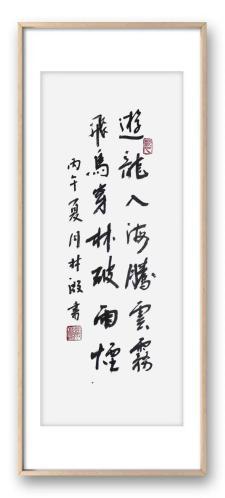 遊龍入海騰雲霧
飛鳥穿林破雨煙
丙午夏月林波書